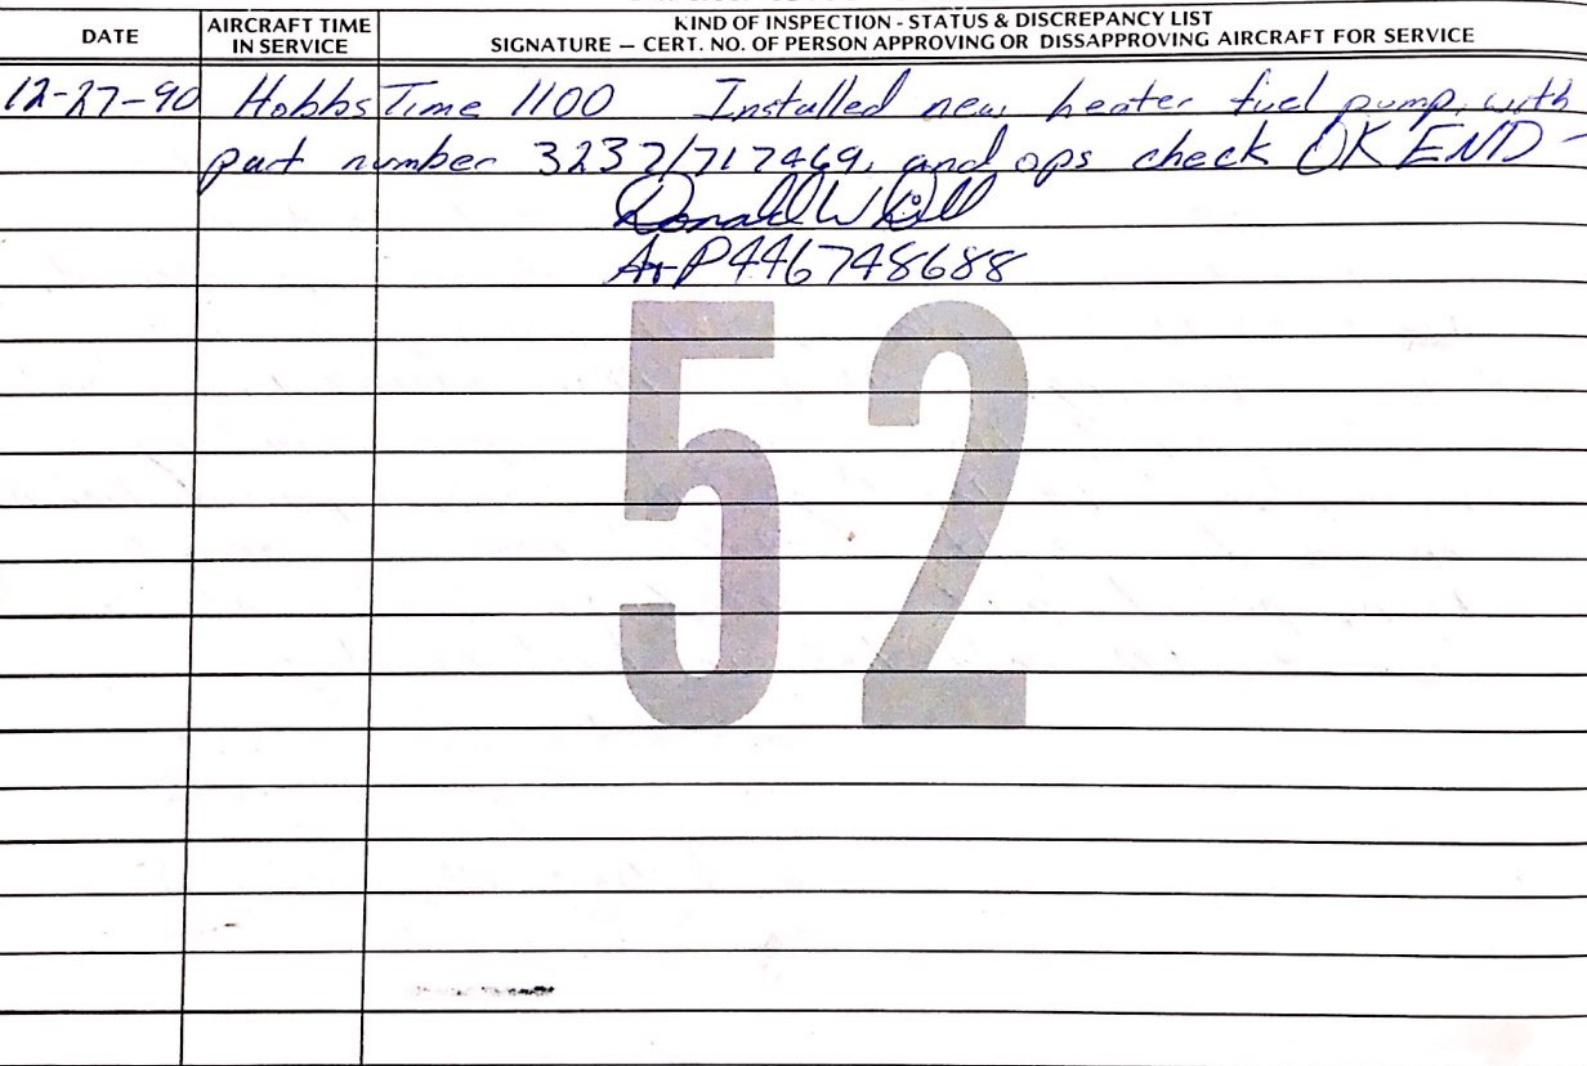 DATE
AIRCRAFT TIME
IN SERVICE
KIND OF INSPECTION - STATUS & DISCREPANCY LIST
SIGNATURE — CERT. NO. OF PERSON APPROVING OR DISSAPPROVING AIRCRAFT FOR SERVICE
12-27-90 Hobbs Time 1100 Installed new heater fuel pump, with
part number 3237/717469, and ops check OK END -
Donald W
A+P446748688
52